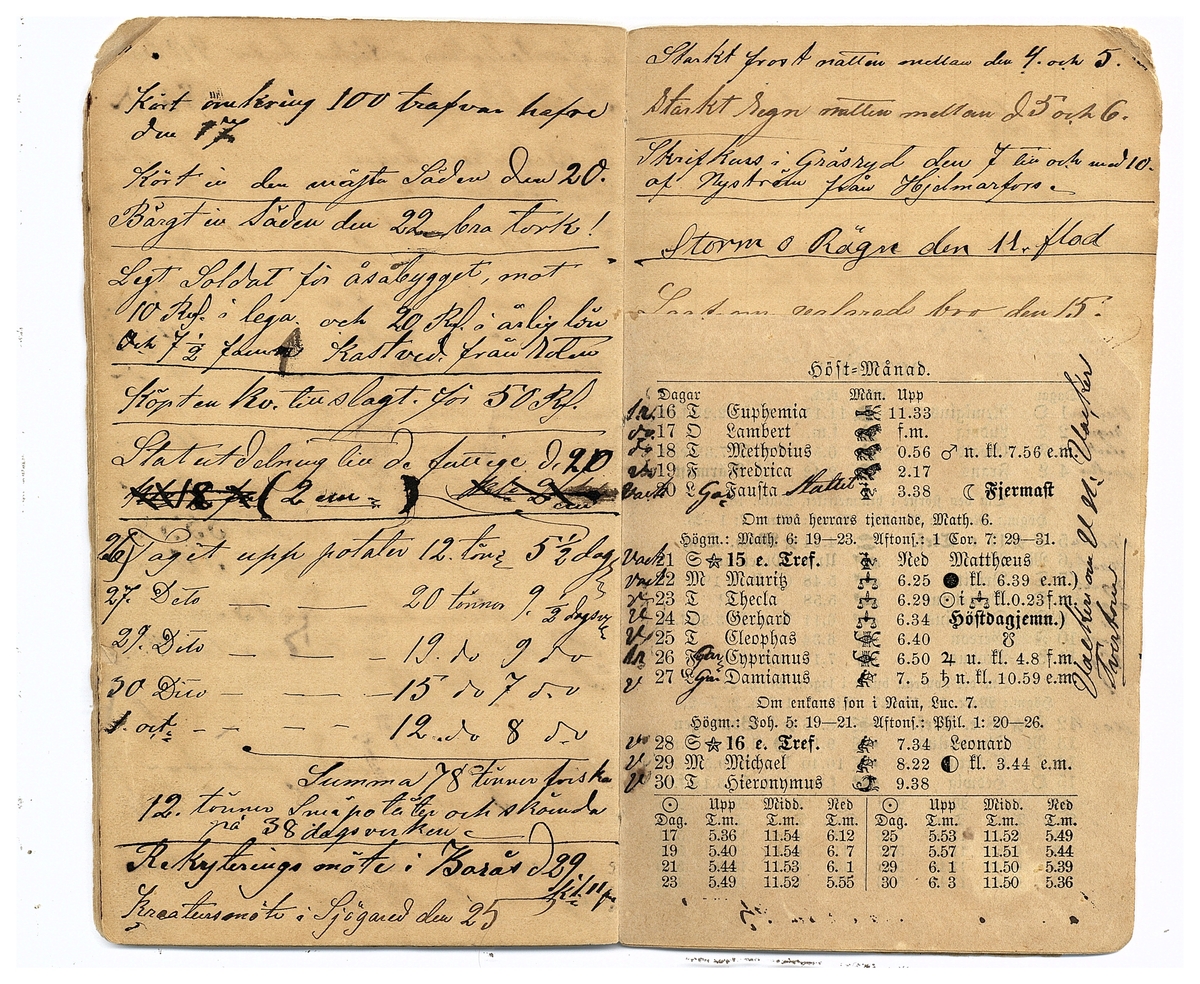 Kört omkring 100 trafvar hafre
den 17
Kört in den mästa Säden den 20.
Bärgt in Säden den 22 bra tork!
Legt Soldat för åsabygget, mot
10 Rf. i lega och 20 Rf. i årlig lön
Och 7 1/2 famn Kastved. från Roten
Köpt en ko. till slagt. för 50 Rf.
Statutdelning till de fattige d. 20
( 2 em )
26) Taget upp potater 12. tönr 5 1/2 dag
27. Dito — — 20 tönnor 9. 1/2 dagsv
29. Dito — — — 19. do 9 do
30 Dito — — — 15 do 7 do
1. oct. — — — 12. do 8 do
Summa 78 tönnor friska
12. tönnor Småpotäter och skämda
på 38 dagsverken
Rekryterings möte i Borås d 29
kl. 11 f.
Kreatursmöte i Sjögared den 25
Starkt frost natten mellan den 4. och 5.
Starkt Regn natten mellan d 5 och 6.
Skrifkurs i Gräsryd den 7 till och med 10.
af Nyström från Hjelmarfors.
Storm o Rägn den 11. flod
bro den 15.
Höst-Månad.
Dagar Mån. Upp
16 T Euphemia 11.33
17 O Lambert f.m.
18 T Methodius 0.56 ♂ n. kl. 7.56 e.m.
19 F Fredrica 2.17
20 L Fausta Stattet 3.38 ☾ Fjermast
Om twå herrars tjenande, Math. 6.
Högm.: Math. 6: 19—23. Aftons.: 1 Cor. 7: 29—31.
21 S ☆ 15 e. Tref. Ned Matthæus
22 M Mauritz 6.25 ● kl. 6.39 e.m.)
23 T Thecla 6.29 ☉ i ♎ kl. 0.23 f.m.
24 O Gerhard 6.34 Höstdagjemn.)
25 T Cleophas 6.40 ☋
26 F Cyprianus 6.50 ♃ u. kl. 4.8 f.m.
27 L Damianus 7. 5 ♄ n. kl. 10.59 e.m.
Om enkans son i Nain, Luc. 7.
Högm.: Joh. 5: 19—21. Aftons.: Phil. 1: 20—26.
28 S ☆ 16 e. Tref. 7.34 Leonard
29 M Michael 8.22 ◐ kl. 3.44 e.m.
30 T Hieronymus 9.38
☉ Upp Midd. Ned ☉ Upp Midd. Ned
Dag. T.m. T.m. T.m. Dag. T.m. T.m. T.m.
17 5.36 11.54 6.12 25 5.53 11.52 5.49
19 5.40 11.54 6. 7 27 5.57 11.51 5.44
21 5.44 11.53 6. 1 29 6. 1 11.50 5.39
23 5.49 11.52 5.55 30 6. 3 11.50 5.36